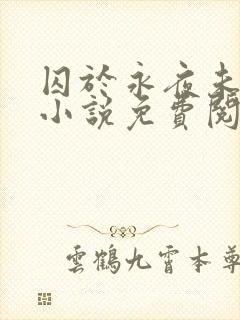 囚於永夜未
小說免費閱
雲鶴九霄本尊